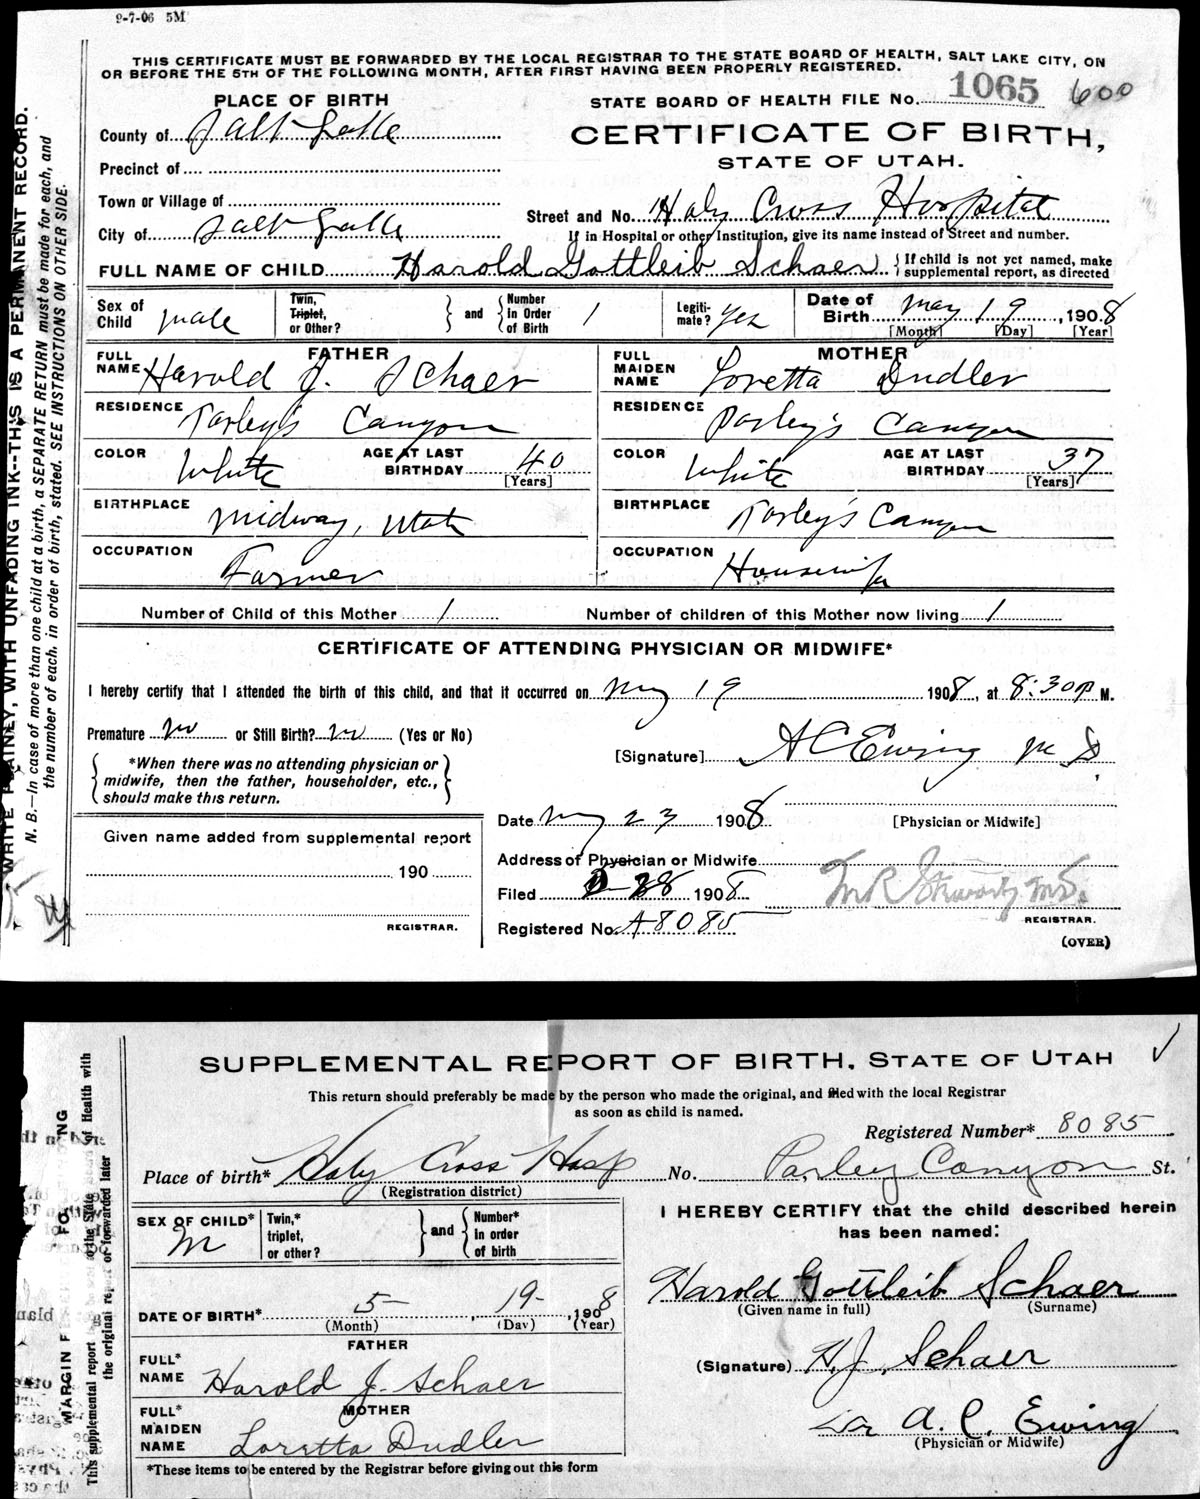 9-7-06 5M
THIS CERTIFICATE MUST BE FORWARDED BY THE LOCAL REGISTRAR TO THE STATE BOARD OF HEALTH, SALT LAKE CITY, ON
OR BEFORE THE 5TH OF THE FOLLOWING MONTH, AFTER FIRST HAVING BEEN PROPERLY REGISTERED.
STATE BOARD OF HEALTH FILE No. 1065 600
PLACE OF BIRTH
County of Salt Lake
CERTIFICATE OF BIRTH,
STATE OF UTAH.
Precinct of
Town or Village of
Street and No. Holy Cross Hospital
City of Salt Lake
If in Hospital or other Institution, give its name instead of Street and number.
FULL NAME OF CHILD Harold Gottleib Schaer { If child is not yet named, make supplemental report, as directed
Sex of Child male
Twin, Triplet, or Other? } and { Number in Order of Birth 1
Legitimate? yes
Date of Birth May 19, 1908
[Month] [Day] [Year]
FATHER
FULL NAME Harold J. Schaer
RESIDENCE Parley's Canyon
COLOR White AGE AT LAST BIRTHDAY 40
[Years]
BIRTHPLACE Midway, Utah
OCCUPATION Farmer
MOTHER
FULL MAIDEN NAME Loretta Dudler
RESIDENCE Parley's Canyon
COLOR White AGE AT LAST BIRTHDAY 37
[Years]
BIRTHPLACE Parley's Canyon
OCCUPATION Housewife
Number of Child of this Mother 1 Number of children of this Mother now living 1
CERTIFICATE OF ATTENDING PHYSICIAN OR MIDWIFE*
I hereby certify that I attended the birth of this child, and that it occurred on May 19 1908, at 8:30 P M.
Premature no or Still Birth? no (Yes or No)
[Signature] A C Ewing M D.
{ *When there was no attending physician or
midwife, then the father, householder, etc.,
should make this return. }
Date May 23 1908 [Physician or Midwife]
Given name added from supplemental report
190
REGISTRAR.
Address of Physician or Midwife
Filed 28 1908
REGISTRAR.
Registered No. A8085
(OVER)
WRITE PLAINLY, WITH UNFADING INK--THIS IS A PERMANENT RECORD.
N. B.—In case of more than one child at a birth, a SEPARATE RETURN must be made for each, and
the number of each, in order of birth, stated. SEE INSTRUCTIONS ON OTHER SIDE.
SUPPLEMENTAL REPORT OF BIRTH, STATE OF UTAH
This return should preferably be made by the person who made the original, and filed with the local Registrar
as soon as child is named.
Registered Number* 8085
Place of birth* Holy Cross Hosp No. Parley Canyon St.
(Registration district)
SEX OF CHILD* M
Twin,* triplet, or other? } and { Number* in order of birth
I HEREBY CERTIFY that the child described herein
has been named:
Harold Gottleib Schaer
(Given name in full) (Surname)
DATE OF BIRTH* 5 19, 1908
(Month) (Day) (Year)
FATHER
FULL* NAME Harold J. Schaer
(Signature) H. J. Schaer
MOTHER
FULL* MAIDEN NAME Loretta Dudler
Dr A. C. Ewing
(Physician or Midwife)
*These items to be entered by the Registrar before giving out this form